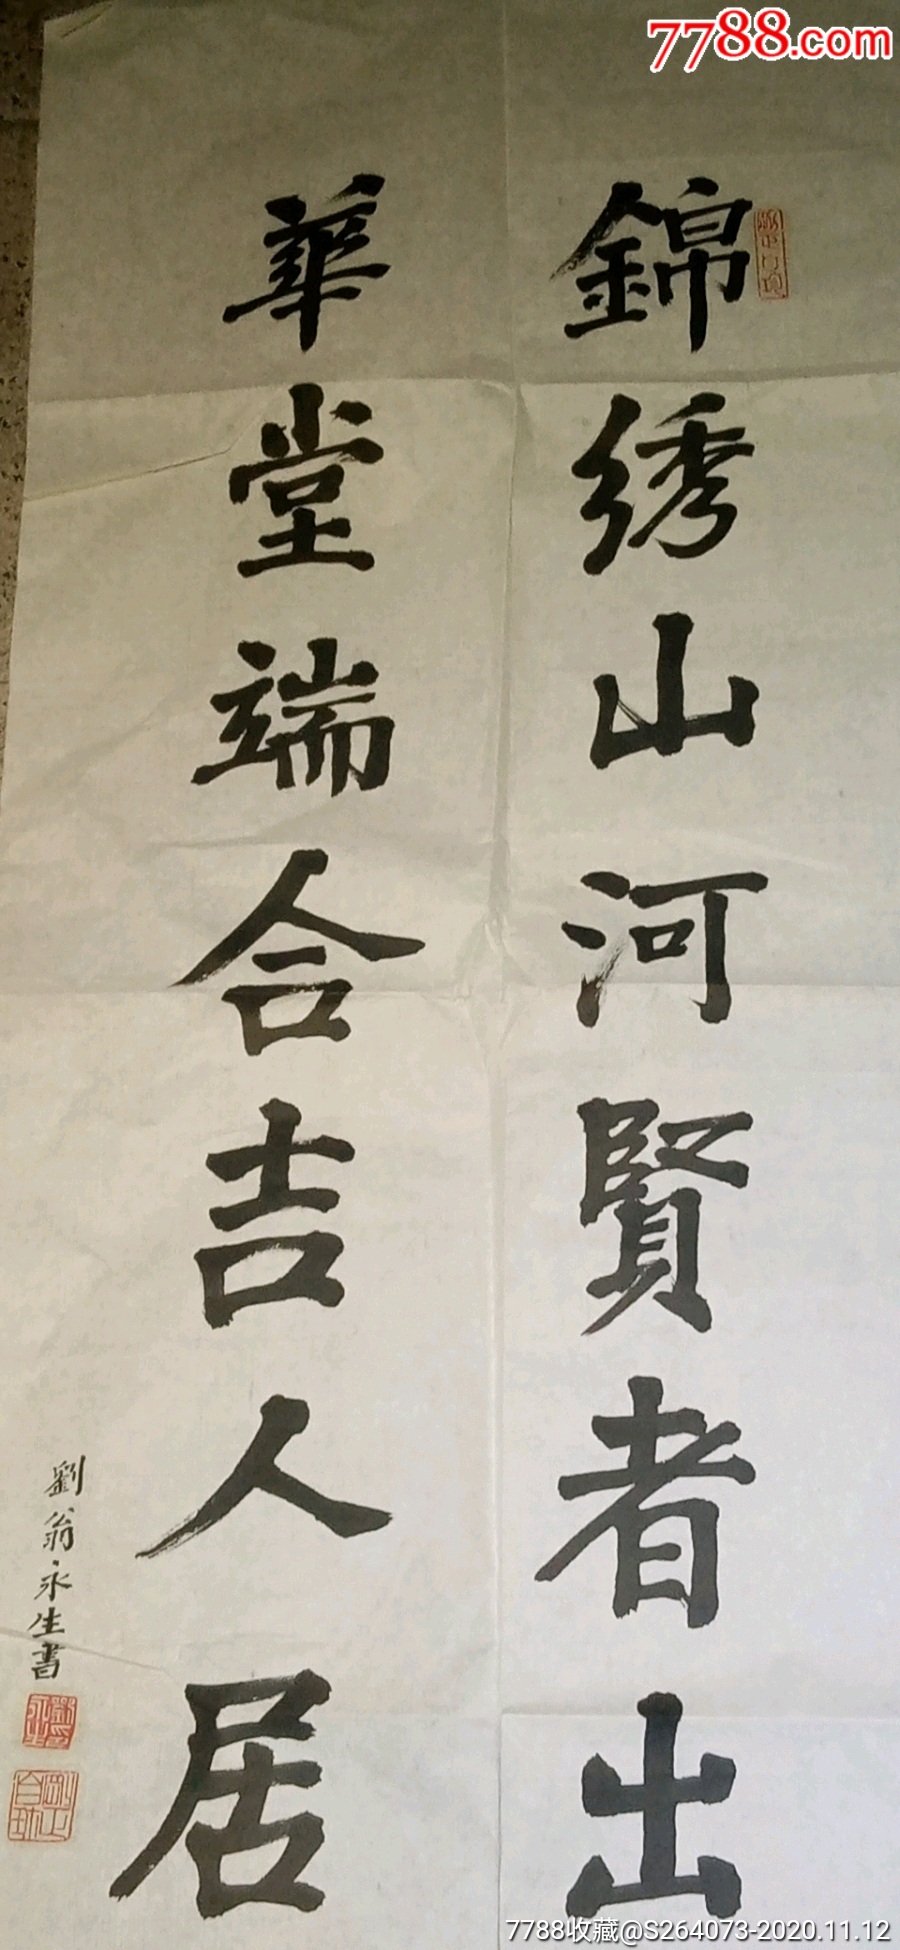 7788.com
錦绣山河賢者出
華堂端合吉人居
劉翁永生書
7788收藏@S264073-2020.11.12